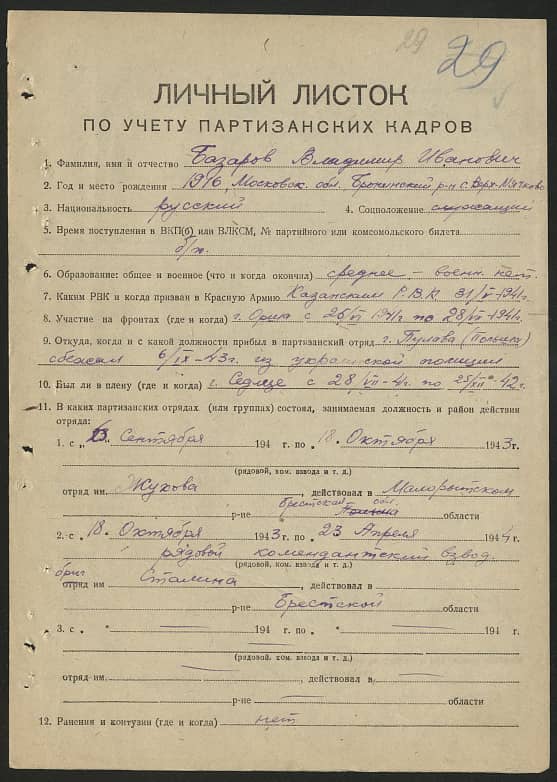 29
29
ЛИЧНЫЙ ЛИСТОК
ПО УЧЕТУ ПАРТИЗАНСКИХ КАДРОВ
1. Фамилия, имя и отчество Базаров Владимир Иванович
2. Год и место рождения 1916, Московск. обл. Бронницкий р-н с. Верх-Мячково
3. Национальность русский 4. Соцположение служащий
5. Время поступления в ВКП(б) или ВЛКСМ, № партийного или комсомольского билета
б/п.
6. Образование: общее и военное (что и когда окончил) среднее – военн. нет.
7. Каким РВК и когда призван в Красную Армию Казанским Р.В.К. 31/V-1941г.
8. Участие на фронтах (где и когда) г. Орша с 26/VI 1941г по 28/VII-1941.
9. Откуда, когда и с какой должности прибыл в партизанский отряд г. Пулава (Польша)
сбежал 6/IX-43г. из украинской полиции
10. Был ли в плену (где и когда) г. Седлце с 28/VII-41г. по 25/XII-42г.
11. В каких партизанских отрядах (или группах) состоял, занимаемая должность и район действия
отряда:
1. с „ Сентября 194 г. по 18. Октября 1943г.
(рядовой, ком. взвода и т. д.)
отряд им. Жукова, действовал в Малорытском
р-не Брестская обл. области
2. с „18. Октября 1943г. по „23 Апреля 1944г.
рядовой комендантский взвод.
(рядовой, ком. взвода и т. д.)
бриг
отряд им Сталина, действовал в
р-не Брестской области
3. с „ “ 194 г. по „ “ 194 г.
(рядовой, ком. взвода и т. д.)
отряд им. действовал в
р-не области
12. Ранения и контузии (где и когда) нет